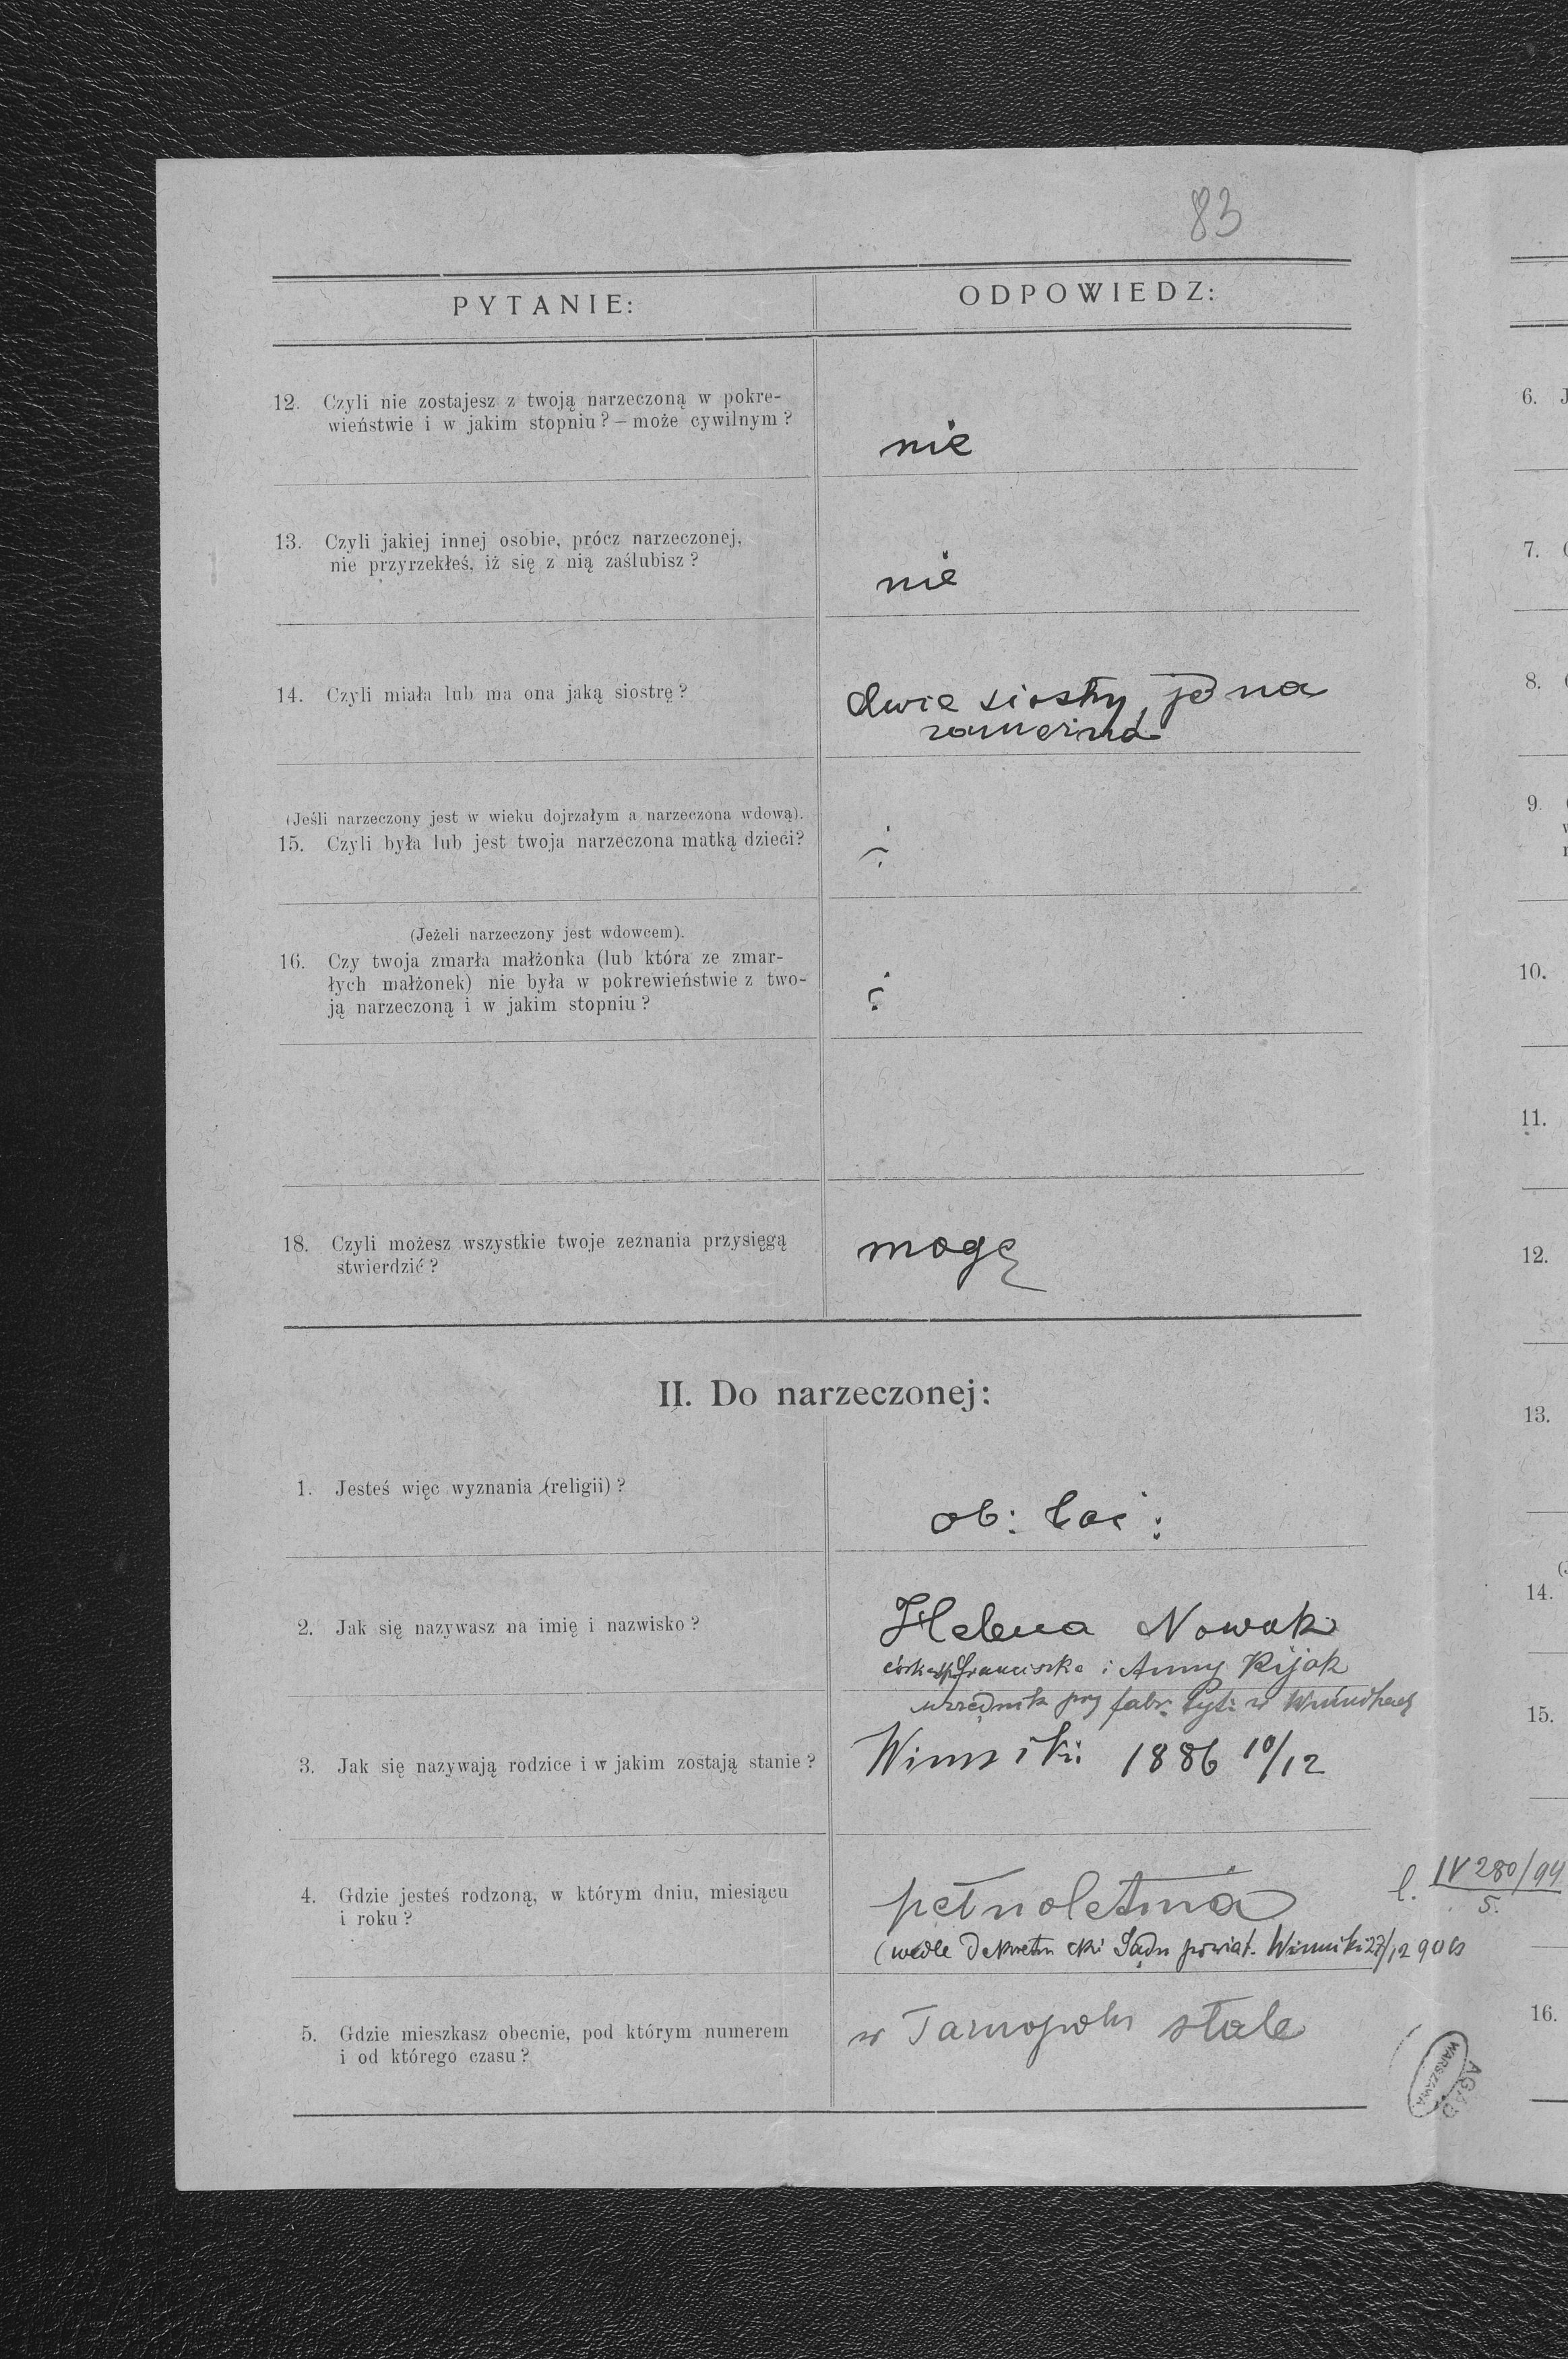 83
PYTANIE:
ODPOWIEDZ:
12. Czyli nie zostajesz z twoją narzeczoną w pokre-
wieństwie i w jakim stopniu? — może cywilnym?
nie
13. Czyli jakiej innej osobie, prócz narzeczonej,
nie przyrzekłeś, iż się z nią zaślubisz?
nie
14. Czyli miała lub ma ona jaką siostrę?
dwie siostry, jedna
zamężna
(Jeśli narzeczony jest w wieku dojrzałym a narzeczona wdową).
15. Czyli była lub jest twoja narzeczona matką dzieci?
(Jeżeli narzeczony jest wdowcem).
16. Czy twoja zmarła małżonka (lub która ze zmar-
łych małżonek) nie była w pokrewieństwie z two-
ją narzeczoną i w jakim stopniu?
18. Czyli możesz wszystkie twoje zeznania przysięgą
stwierdzić?
mogę
II. Do narzeczonej:
1. Jesteś więc wyznania (religii)?
ob: łać:
2. Jak się nazywasz na imię i nazwisko?
Helena Nowak
córka śp Franciszka i Anny Kijak
urzędnik przy fabr. tyt: w Winnikach
3. Jak się nazywają rodzice i w jakim zostają stanie?
Winniki 1886 10/12
4. Gdzie jesteś rodzoną, w którym dniu, miesiącu
i roku?
pełnoletnia
l. IV 280/94
5.
(wedle Dekretu cki Sądu powiat. Winniki 27/12 906
5. Gdzie mieszkasz obecnie, pod którym numerem
i od którego czasu?
w Tarnopolu stale
AGAD
WARSZAWA
6. J
7.
8.
9.
10.
11.
12.
13.
14.
15.
16.